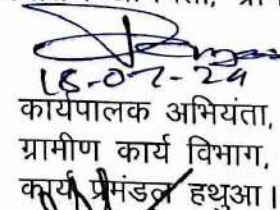 18-07-24
कार्यपालक अभियंता,
ग्रामीण कार्य विभाग,
कार्य प्रमंडल हथुआ।